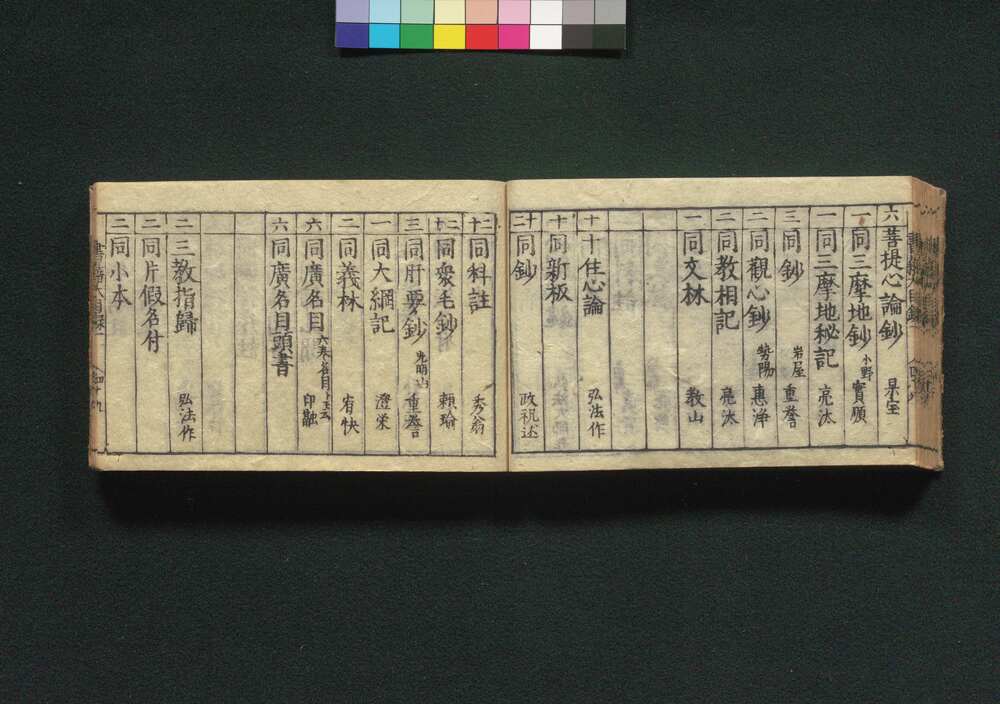 六 菩提心論鈔 杲宝
一 同三摩地鈔 小野 實願
一 同三摩地秘記 亮汰
三 同鈔 岩屋 重誉
二 同觀心鈔 勢陽 惠浄
二 同教相記 亮汰
一 同文林 教山
十 十住心論 弘法作
十 同新板
十二 同鈔 政祝述
十二 同科註 秀翁
十二 同衆毛鈔 頼瑜
三 同肝要鈔 光明山 重誉
一 同大綱記 澄栄
二 同義林 宥快
六 同廣名目 六巻名目ト云 印融
六 同廣名目頭書
二 三教指歸 弘法作
二 同片假名付
二 同小本